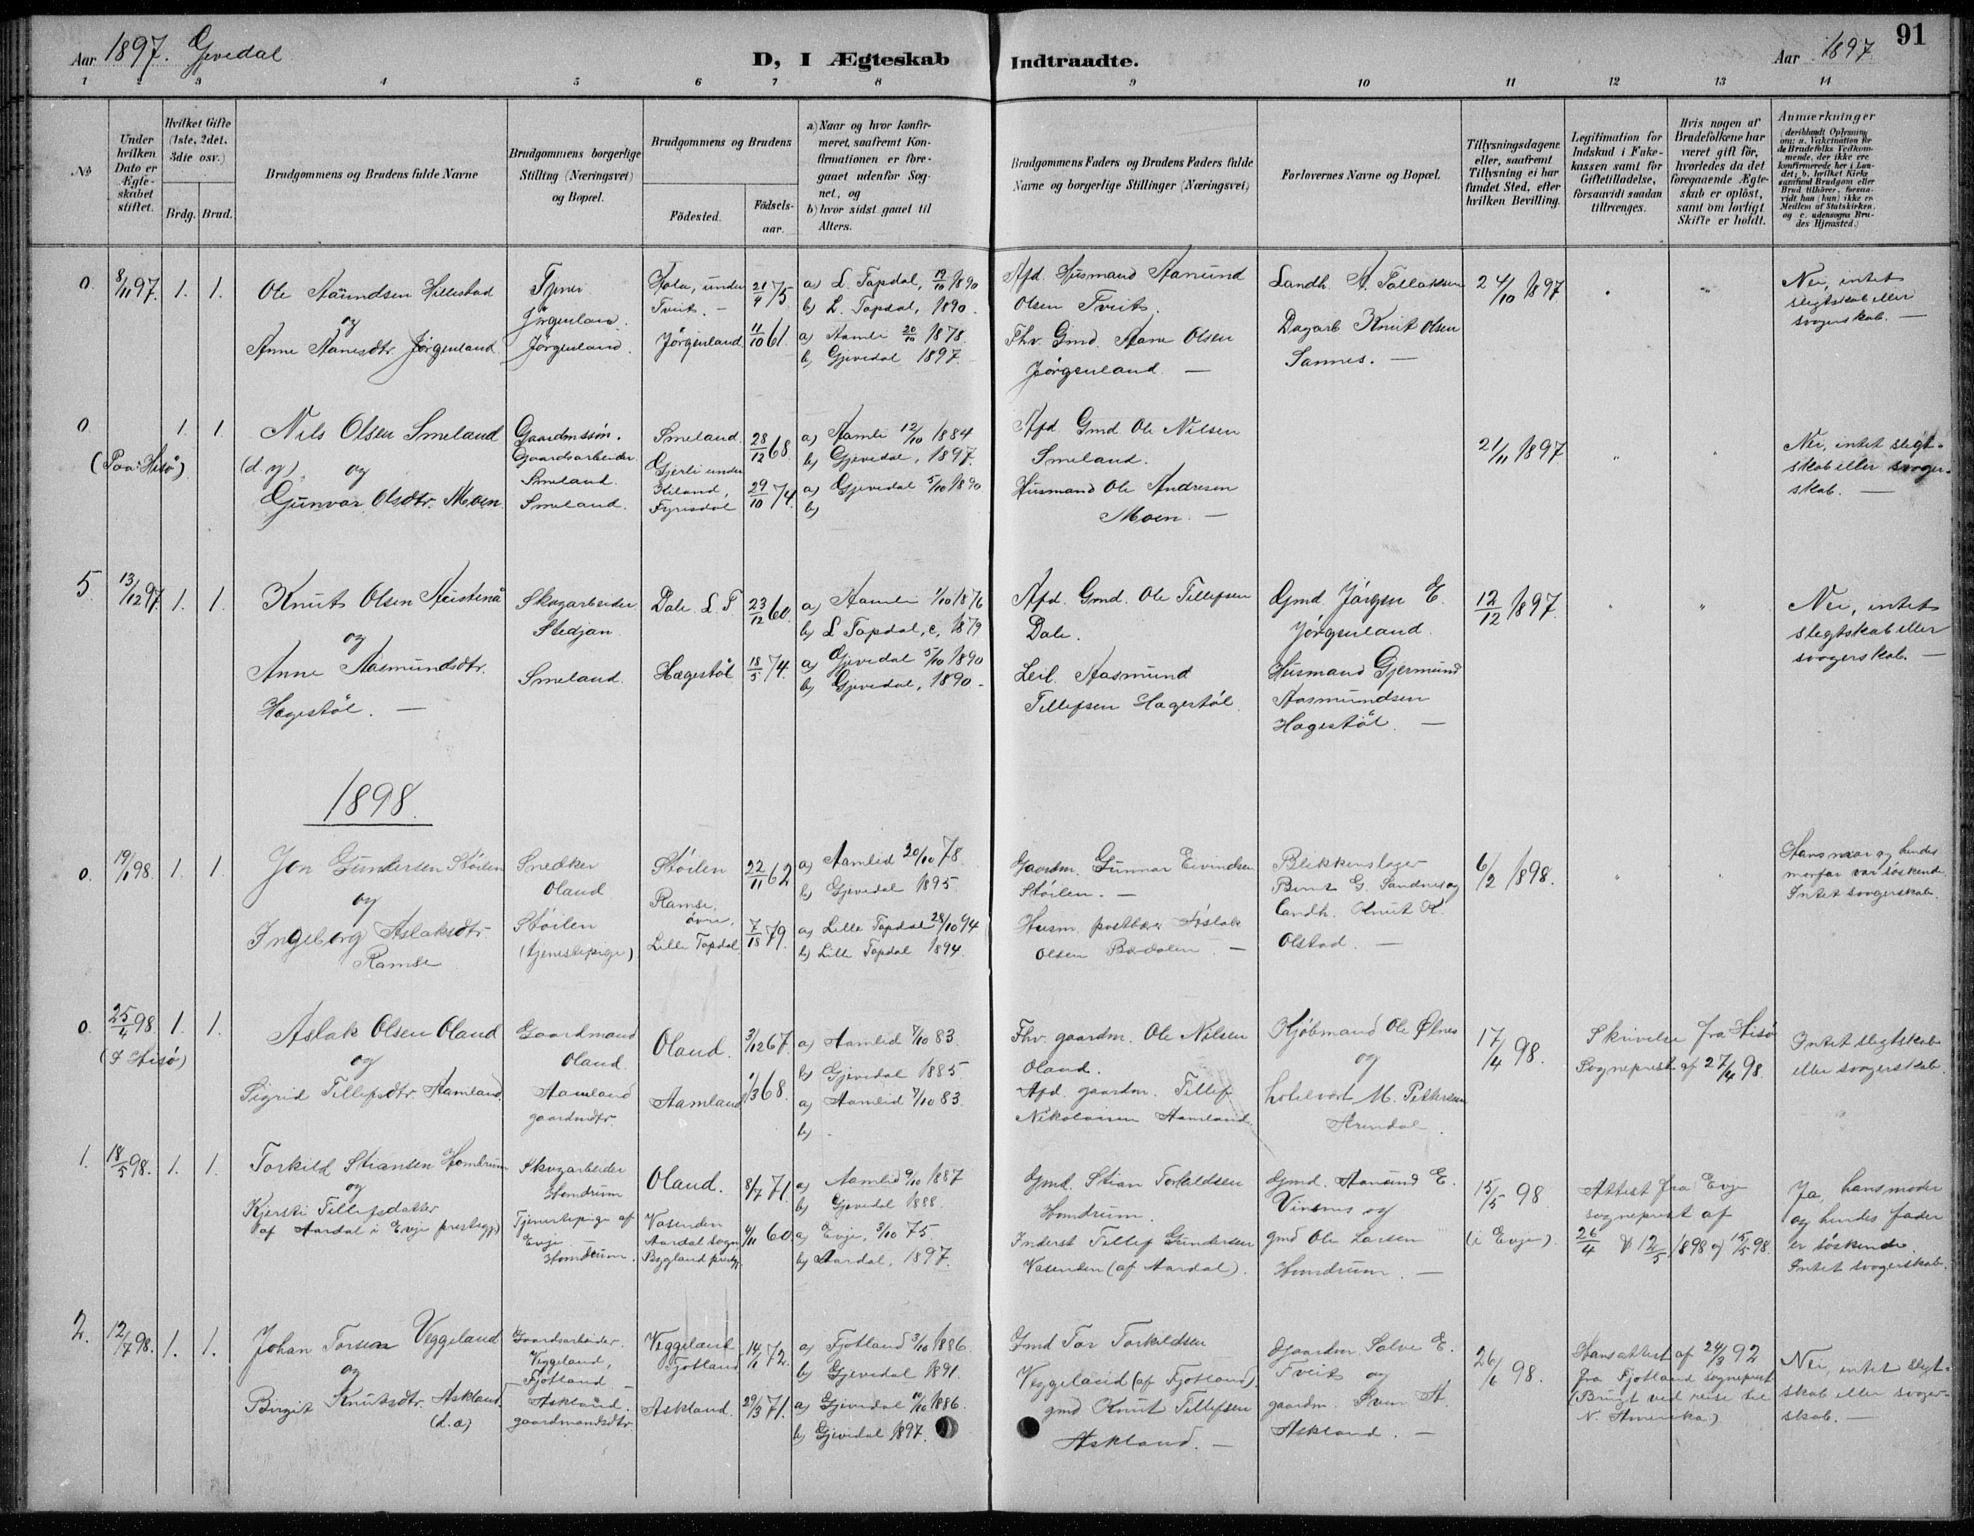 Aar 1897. Gjevedal
D, I Ægteskab Indtraadte.
Aar 1897
91
1 2 3 4 5 6 7 8 9 10 11 12 13 14
No
Under hvilken Dato er Ægteskabet stiftet.
Hvilket Gifte (1ste, 2det, 3die osv.)
Brdg. Brud.
Brudgommens og Brudens fulde Navne
Brudgommens borgerlige Stilling (Næringsvei) og Bopæl.
Brudgommens og Brudens
Fødested.
Fødsels-aar.
a) Naar og hvor konfirmeret, saafremt Konfirmationen er foregaaet udenfor Sognet, og
b) hvor sidst gaaet til Alters.
Brudgommens Faders og Brudens Faders fulde Navne og borgerlige Stillinger (Næringsvei)
Forlovernes Navne og Bopæl.
Tillysningsdagene eller, saafremt Tillysning ei har fundet Sted, efter hvilken Bevilling.
Legitimation for Indskud i Enkekassen samt for Giftetilladelse, forsaavidt saadan tiltrænges.
Hvis nogen af Brudefolkene har været gift før, hvorledes da det foregaaende Ægteskab er opløst, samt om lovligt Skifte er holdt.
Anmærkninger
0. 8/11 97. 1. 1.
Ole Aanundsen Hillestad
og
Anne Aanesdtr. Jørgenland
Jørgenland.
Jørgenland.
Hola, under
Tveit. —
Jørgenland
21/4 75
11/10 61.
a) L. Topdal, 19/10 1890
b) L. Topdal, 1890.
a) Aamli 20/10 1878.
b) Gjevedal 1897.
Afd. Husmand Aanund
Olsen Tveit.
Fhv. Gmd. Aane Olsen
Jørgenland. —
Landh. A. Tallaksen
Dagarb Knut Olsen
Sannes. —
24/10 1897
Nei, intet
slegtskab eller
svogerskab. —
0 1. 1
(Paa Hisø)
Nils Olsen Smeland
(d. y.) og
Gunvor Olsdtr. Moen.
Gaardmssøn.
Gaardsarbeider
Smeland.
Smeland.
Smeland.
Gjerli under
Fyresdal
28/12 68.
29/10 74.
a) Aamli 12/10 1884
b) Gjevedal, 1897.
a) Gjevedal 5/10 1890
b)
Afd. Gmd. Ole Nilsen
Smeland.
Husmand Ole Andresen
Moen. —
21/11 1897
Nei, intet slegt-
skab eller svoger-
skab. —
5 13/12 97 1. 1.
Knut Olsen Austenå
og
Anne Aasmundsdtr.
Hægestøl. —
Skogarbeider
Stedjan.
Smeland.
Dale L. T
Hægestøl
23/12 60.
18/5 74.
a) Aamli 1/10 1876
b) L Topdal, c. 1879
a) Gjevedal 5/10 1890
b) Gjevedal, 1890 -
Afd. Gmd. Ole Tellefsen
Dale.
Leil. Aasmund
Tellefsen Hægestøl.
Gmd. Jørgen E.
Jørgenland.
Husmand Gjermund
Aasmundsen
Hægestøl. —
12/12 1897.
Nei, intet
slegtskab eller
svogerskab. —
1898.
0. 19/1 98. 1. 1.
Jon Gundersen Støilen
og
Ingeborg Aslaksdtr.
Ramse
Snedker
Oland
Støilen
(tjenestepige)
Støilen
Ramse,
øvre,
Lille Topdal
22/11 62
79.
a) Aamlid 20/10 78.
b) Gjevedal 1895.
a) Lille Topdal 28/10 94
b) Lille Topdal 1894.
Gaardm. Gunnar Eivindsen
Støilen. —
Husm. postbær. Aslak
Olsen —
Blikkenslager
Bernt G. Sandnes og
Landh. Knut K.
Olstad. —
6/2 1898.
Hans mor og hendes
morfar var søskende.
Intet svogerskab.
0. 25/4 98. 1. 1.
(I Hisø)
Aslak Olsen Oland
og
Sigrid Tellefsdtr. Aamland
Gaardmand
Oland.
Aamland
gaardmdtr.
Oland.
Aamland
3/12 67.
1/3 68.
a) Aamlid 7/10 83.
b) Gjevedal 1885
a) Aamlid 7/10 83.
b) -
Fhv. gaardm. Ole Nilsen
Oland.
Afd. gaardm. Tellef
Nikolaisen Aamland.
Kjøbmand Ole Øines
og
hotelvert M. Pettersen
Arendal.
17/4 98.
Skrivelse fra Hisø
Sogneprest af 27/4 98.
Intet slegtskab
eller svogerskab.
1. 18/5 98. 1. 1.
Torkild Stiansen Homdrum
og
Kjersti Tellefsdatter
af Aardal i Evje prestegj.
Skogarbeider
Homdrum
Tjenestepige af
Evje —
Homdrum.
Oland.
Vasenden
Aardal sogn
Bygland prestgj.
8/7 71.
4/11 60.
a) Aamlid 9/10 1887
b) Gjevedal 1888.
a) Evje, 3/10 75.
b) Aardal, 1897.
Gmd. Stian Torkildsen
Homdrum.
Inderst Tellef Gundersen
Vasenden (af Aardal).
Gmd. Aanund E.
Vinenes og
gmd Ole Larsen
Homdrum. —
15/5 98
(i Evje).
Attest fra Evje
sogneprest af
26/4 & 12/5 1898 og 15/5 98.
Ja, hans moder
og hendes fader
er søskende.
Intet svogerskab.
2. 12/7 98. 1. 1.
Johan Torsen Veggeland
og
Birgit Knutsdtr. Askland.
(d. a)
Gaardsarbeider
Veggeland,
Fjotland —
Askland.
gaardmandsdtr.
Veggeland
Fjotland
Askland.
72.
29/3 71.
a) Fjotland 3/10 1886.
b) Gjevedal 1891.
a) Gjevedal 10/10 1886.
b) Gjevedal 1897.
Gmd Tor Torkildsen
Veggeland (af Fjotland).
gmd Knut Tellefsen
Askland. —
Gaardm. Salve E.
Tveit og
gaardm. Sven A.
Askland. —
26/6 98.
Hans attest af 24/3 92
fra Fjotland sogneprest
(Brugt ved reise til
N. Amerika)
Nei, intet slegt-
skab eller svoger-
skab. —